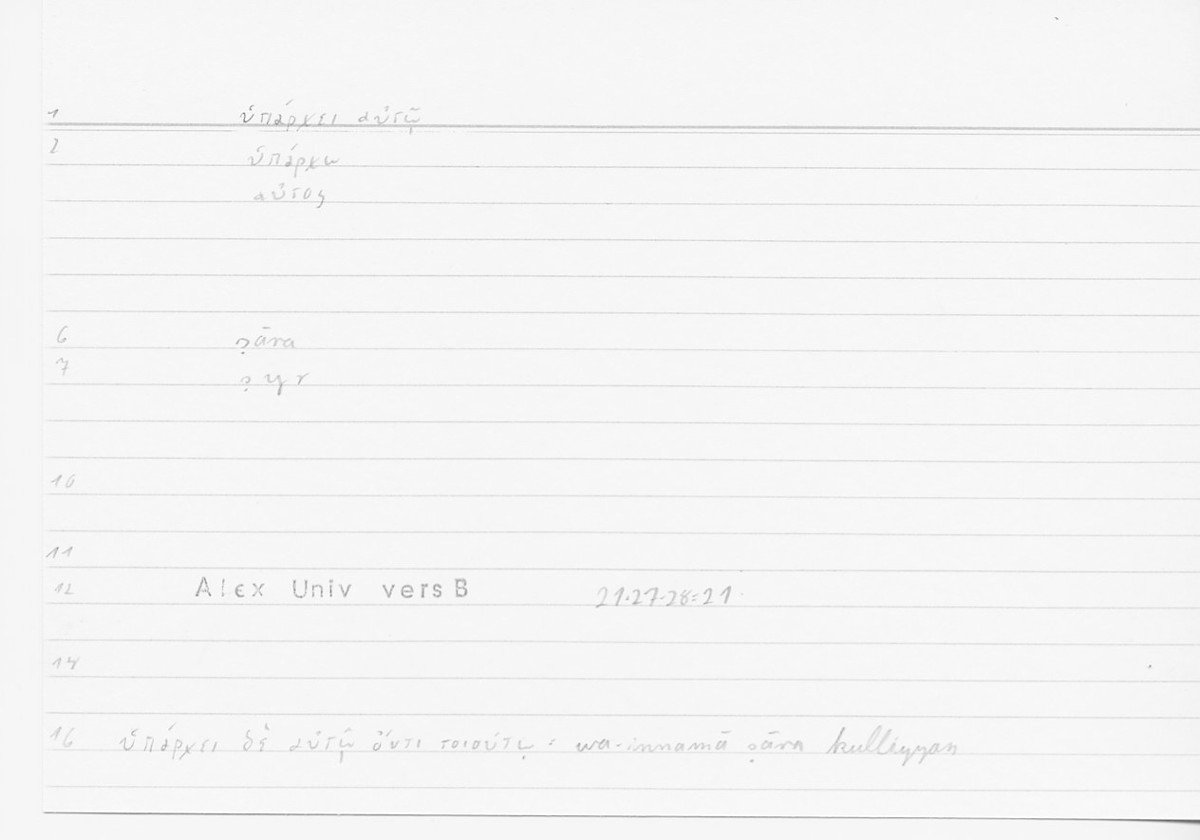 1 ὑπάρχει αὐτῷ
2 ὑπάρχω
αὐτος
6 ṣāra
7 ṣyr
10
11
12 Alex Univ vers B 21.27-28=21
14
16 ὑπάρχει δὲ αὐτῷ ὄντι τοιούτῳ : wa-innamā ṣāra kulliyyan